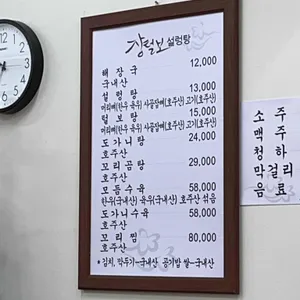 장털보 설렁탕
해장국 12,000
국내산
설렁탕 13,000
머리뼈(한우 육우) 사골잡뼈(호주산) 고기(호주산)
털보탕 15,000
머리뼈(한우 육우) 사골잡뼈(호주산) 고기(호주산)
도가니탕 24,000
호주산
꼬리곰탕 29,000
호주산
모듬수육 58,000
한우(국내산) 육우(국내산) 호주산 섞음
도가니수육 58,000
호주산
꼬리찜 80,000
호주산
* 김치, 깍두기-국내산 공기밥 쌀-국내산
소주
맥주
청하
막걸리
음료